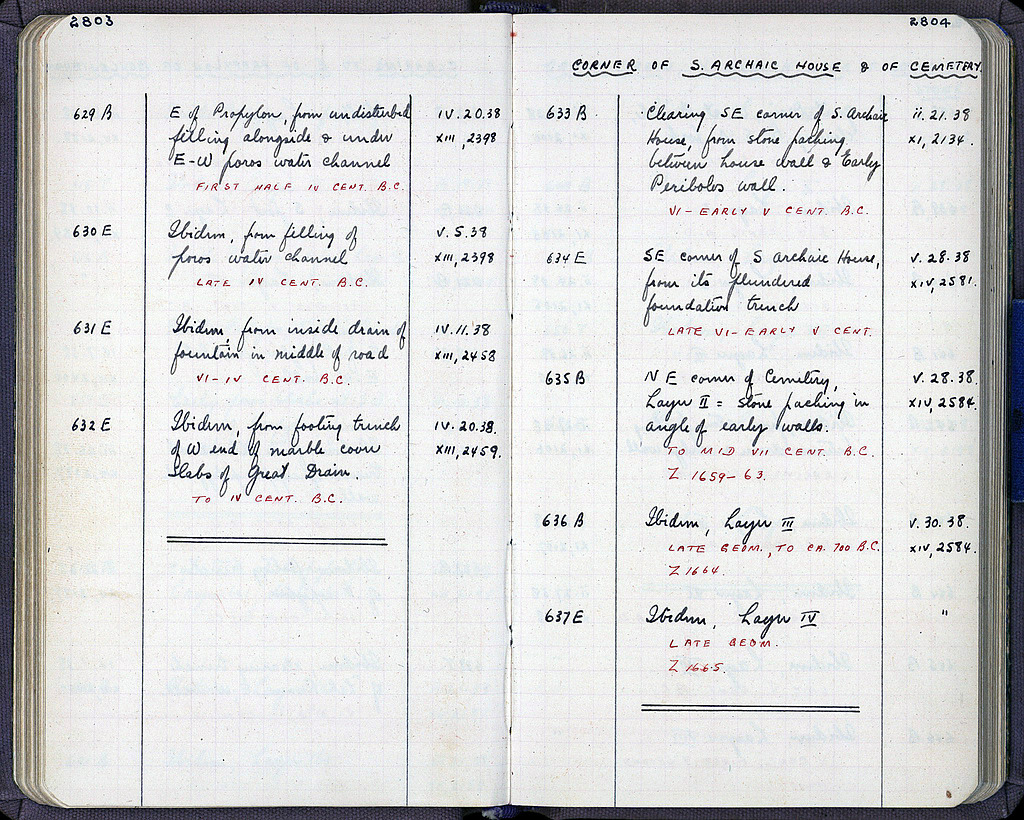 2803
629 B E of Propylon, from undisturbed IV.20.38
filling alongside & under XIII, 2398
E-W poros water channel
FIRST HALF IV CENT. B.C.
630 E Ibidem, from filling of V.5.38
poros water channel XIII, 2398
LATE IV CENT. B.C.
631 E Ibidem, from inside drain of IV.11.38
fountain in middle of road XIII, 2458
VI-IV CENT. B.C.
632 E Ibidem, from footing trench IV.20.38.
of W end of marble cover XIII, 2459.
slabs of Great Drain.
TO IV CENT. B.C.
2804
CORNER OF S. ARCHAIC HOUSE & OF CEMETERY.
633 B Clearing SE corner of S. Archaic II.21.38
House, from stone packing XI, 2134.
between house wall & Early
Peribolos wall.
VI-EARLY V CENT. B.C.
634 E SE corner of S Archaic House, V.28.38
from its plundered XIV, 2581.
foundation trench
LATE VI-EARLY V CENT.
635 B NE corner of Cemetery, V.28.38.
Layer II = stone packing in XIV, 2584.
angle of early walls.
TO MID VII CENT. B.C.
Z 1659-63.
636 B Ibidem, Layer III V.30.38.
LATE GEOM., TO CA. 700 B.C. XIV, 2584.
Z 1664.
637 E Ibidem, Layer IV "
LATE GEOM.
Z 1665.